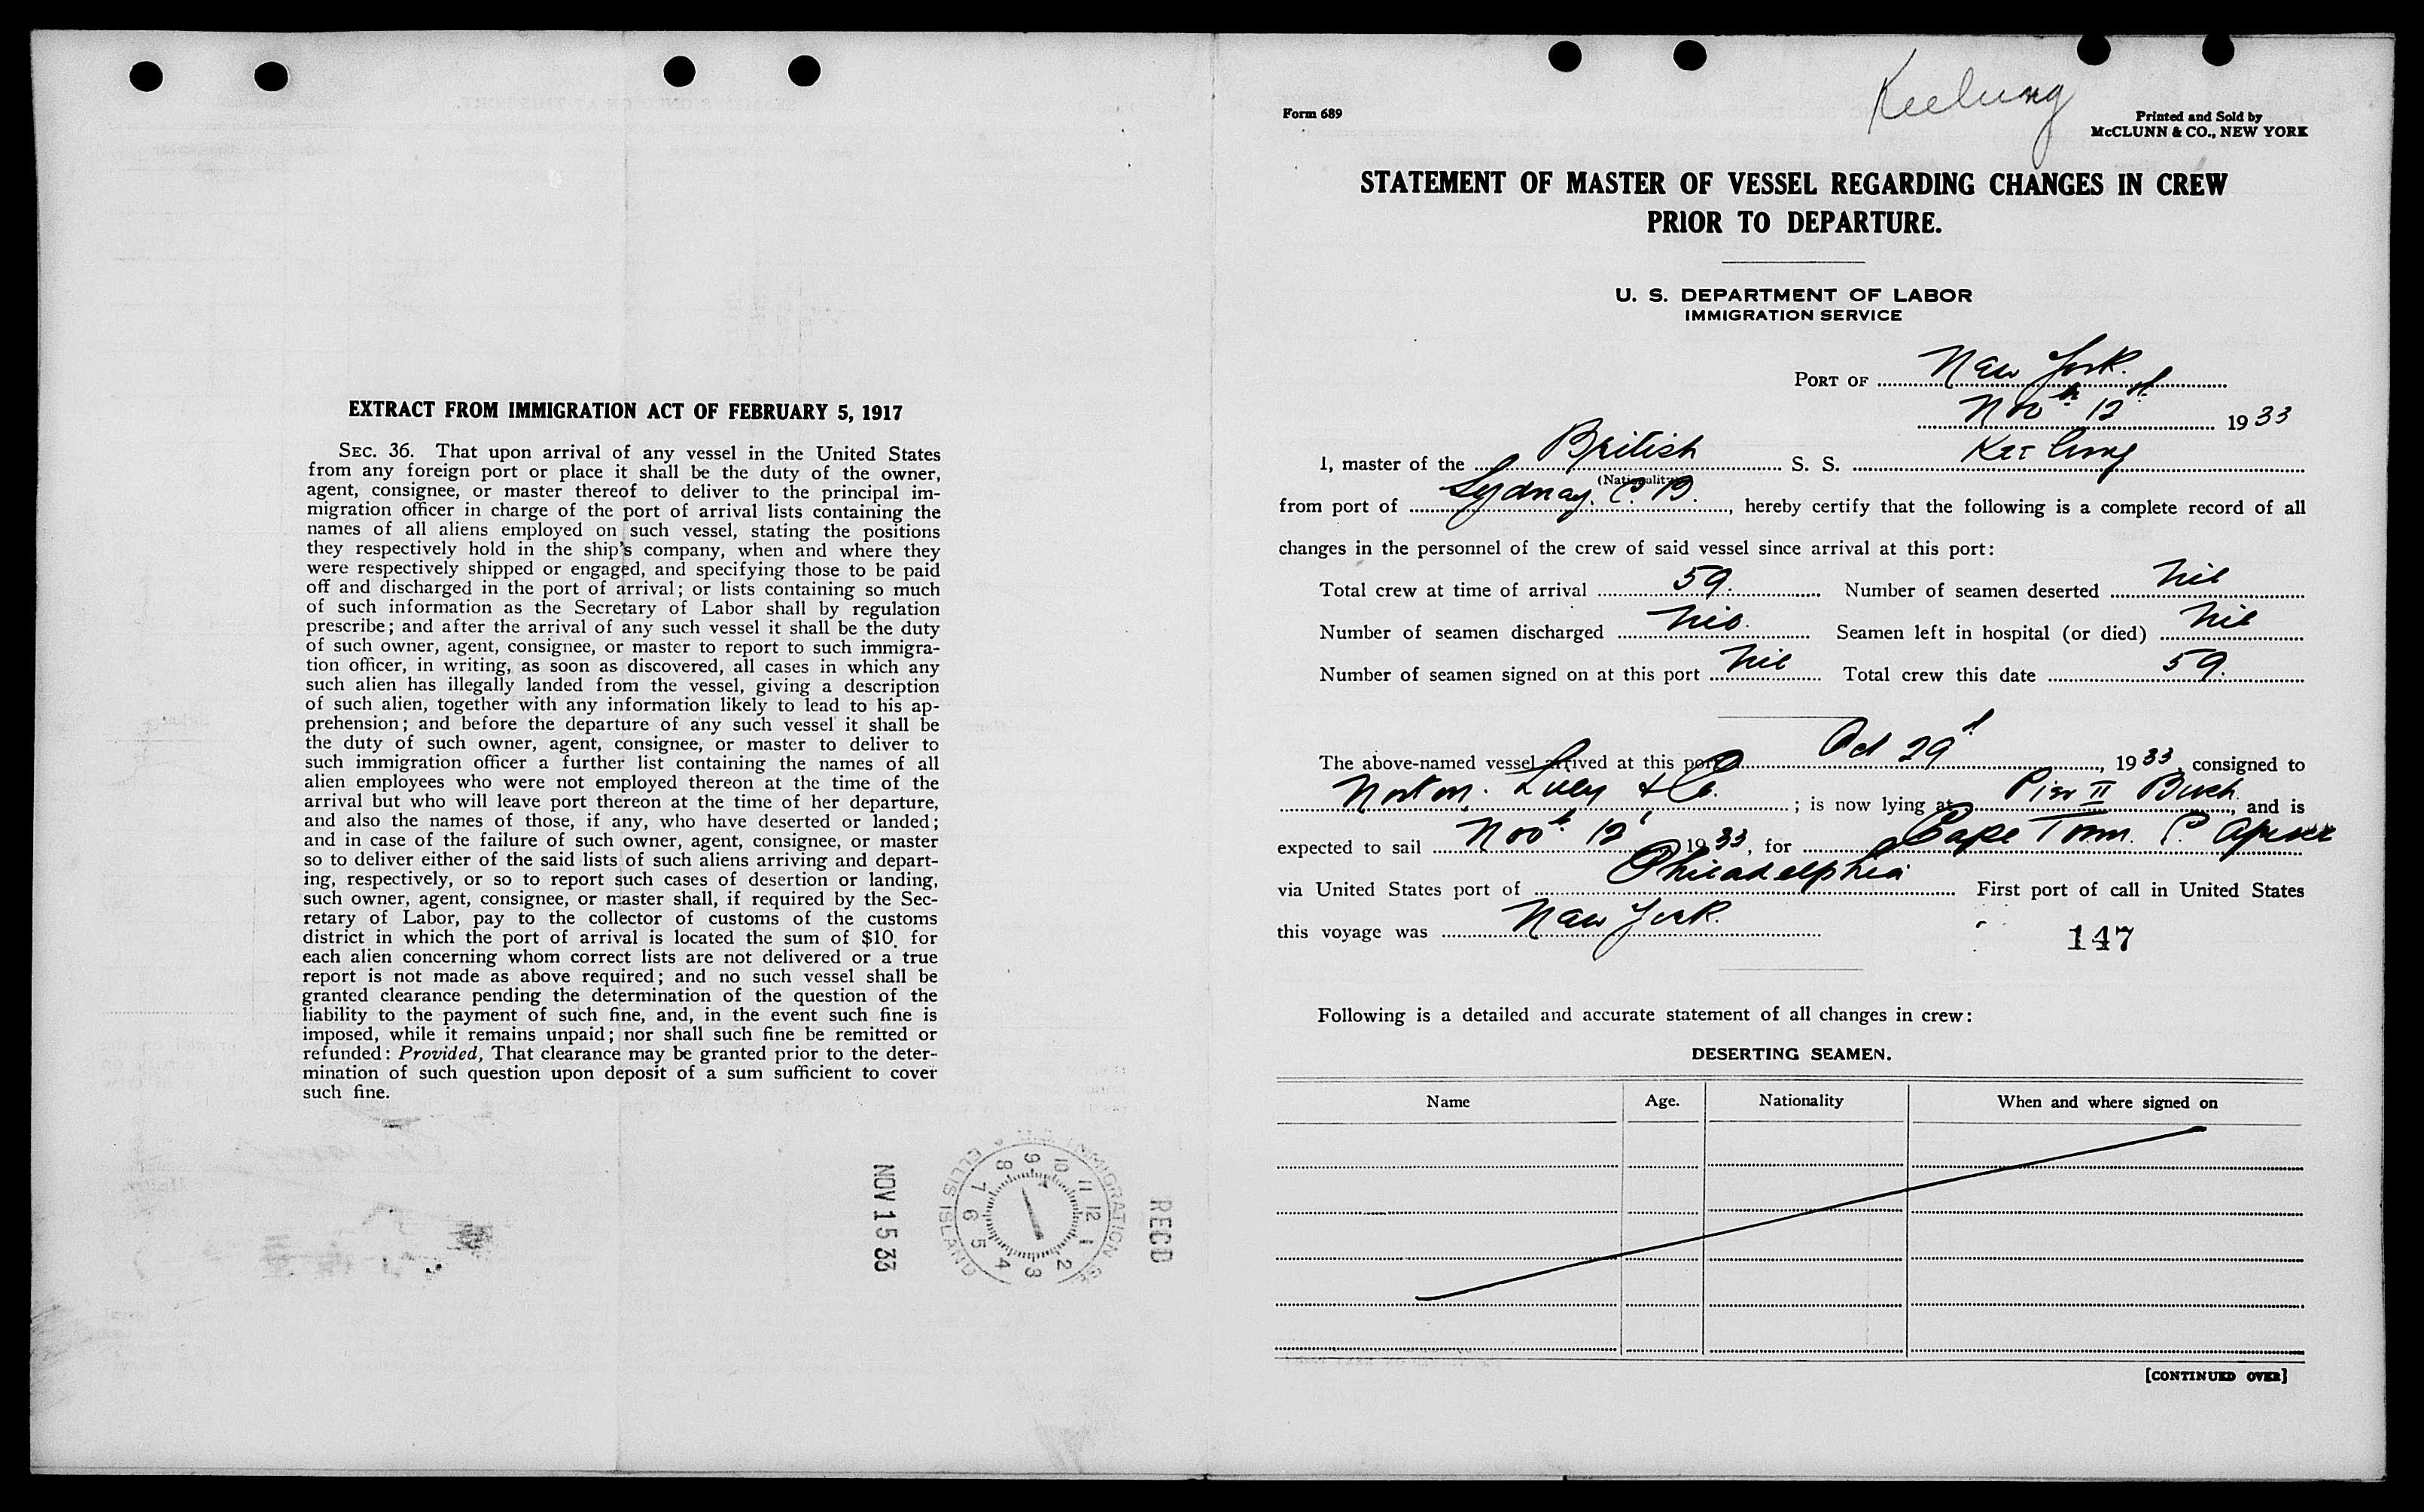 EXTRACT FROM IMMIGRATION ACT OF FEBRUARY 5, 1917
SEC. 36. That upon arrival of any vessel in the United States
from any foreign port or place it shall be the duty of the owner,
agent, consignee, or master thereof to deliver to the principal im-
migration officer in charge of the port of arrival lists containing the
names of all aliens employed on such vessel, stating the positions
they respectively hold in the ship's company, when and where they
were respectively shipped or engaged, and specifying those to be paid
off and discharged in the port of arrival; or lists containing so much
of such information as the Secretary of Labor shall by regulation
prescribe; and after the arrival of any such vessel it shall be the duty
of such owner, agent, consignee, or master to report to such immigra-
tion officer, in writing, as soon as discovered, all cases in which any
such alien has illegally landed from the vessel, giving a description
of such alien, together with any information likely to lead to his ap-
prehension; and before the departure of any such vessel it shall be
the duty of such owner, agent, consignee, or master to deliver to
such immigration officer a further list containing the names of all
alien employees who were not employed thereon at the time of the
arrival but who will leave port thereon at the time of her departure,
and also the names of those, if any, who have deserted or landed;
and in case of the failure of such owner, agent, consignee, or master
so to deliver either of the said lists of such aliens arriving and depart-
ing, respectively, or so to report such cases of desertion or landing,
such owner, agent, consignee, or master shall, if required by the Sec-
retary of Labor, pay to the collector of customs of the customs
district in which the port of arrival is located the sum of $10 for
each alien concerning whom correct lists are not delivered or a true
report is not made as above required; and no such vessel shall be
granted clearance pending the determination of the question of the
liability to the payment of such fine, and, in the event such fine is
imposed, while it remains unpaid; nor shall such fine be remitted or
refunded: Provided, That clearance may be granted prior to the deter-
mination of such question upon deposit of a sum sufficient to cover
such fine.
RECD
ELLIS ISLAND
IMMIGRATION
1 2 3 4 5 6 7 8 9 10 11 12
NOV 15 33
Keelung
Form 689
Printed and Sold by
McCLUNN & CO., NEW YORK
STATEMENT OF MASTER OF VESSEL REGARDING CHANGES IN CREW
PRIOR TO DEPARTURE.
U. S. DEPARTMENT OF LABOR
IMMIGRATION SERVICE
PORT OF New York.
Nov 12 1933
I, master of the British S. S. Keelung
(Nationality)
from port of Sydney. C. B., hereby certify that the following is a complete record of all
changes in the personnel of the crew of said vessel since arrival at this port:
Total crew at time of arrival 59. Number of seamen deserted Nil
Number of seamen discharged Nil. Seamen left in hospital (or died) Nil
Number of seamen signed on at this port Nil Total crew this date 59.
The above-named vessel arrived at this port Oct 29, 1933, consigned to
Norton. Lilly & Co.; is now lying at Pier II Bush, and is
expected to sail Nov 12 1933, for Cape Town.
via United States port of Philadelphia First port of call in United States
this voyage was New York. 147
Following is a detailed and accurate statement of all changes in crew:
DESERTING SEAMEN.
Name Age. Nationality When and where signed on
[CONTINUED OVER]